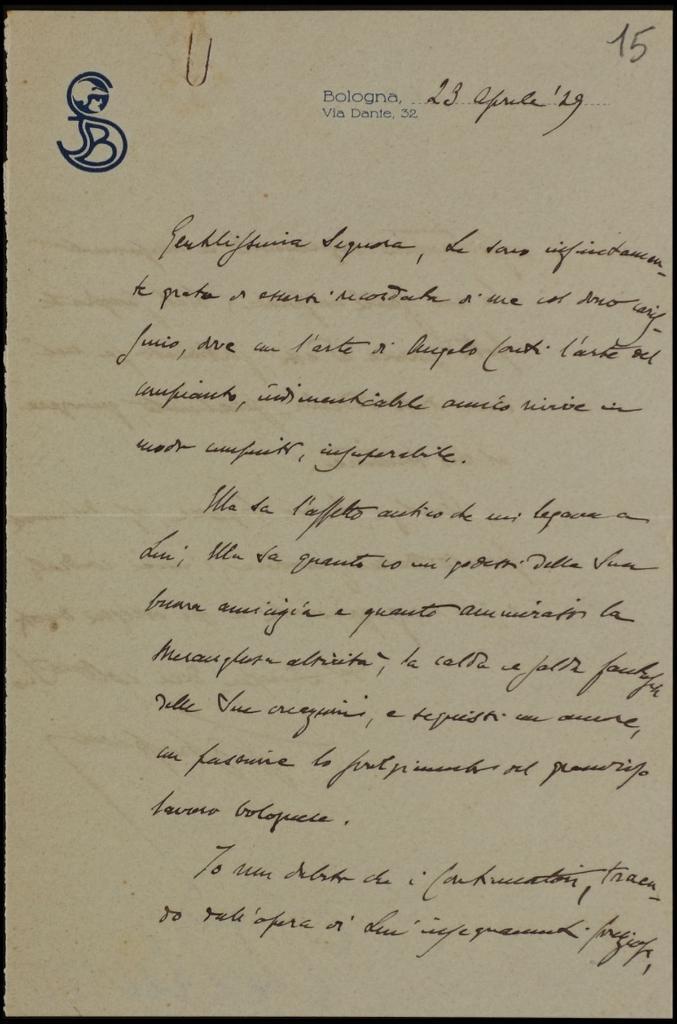 15
SB
Bologna, 23 Aprile '29
Via Dante, 32
Gentilissima Signora, Le sono infinitamen-
te grata di essersi ricordata di me col dono caris-
simo, dove con l'arte di Angelo Conti l'arte del
compianto, indimenticabile amico rivive in
modo compiuto, insuperabile.
Ella sa l'affetto antico che mi legava a
Lui; Ella sa quanto io mi godessi della Sua
buona amicizia e quanto ammirassi la
meravigliosa attività, la calda e salda fantasia
delle Sue creazioni, e seguissi con amore,
con passione lo svolgimento del grandioso
lavoro bolognese.
Io non dubito che i Continuatori, traen-
do dall'opera di Lui insegnamenti preziosi,